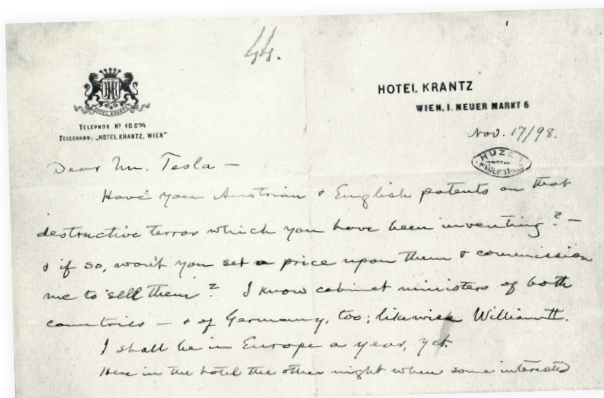 44.
HOTEL KRANTZ
WIEN, I. NEUER MARKT 6
HOTEL KRANTZ
TELEPHON Nº 10.074
TELEGRAMM: „HOTEL KRANTZ, WIEN"
Nov. 17/98.
Dear Mr. Tesla —
Have you Austrian & English patents on that
destructive terror which you have been inventing? —
& if so, won't you set a price upon them & commission
me to sell them? I know cabinet ministers of both
countries — & of Germany, too; likewise William II.
I shall be in Europe a year, yet.
Here in the hotel the other night when some interested